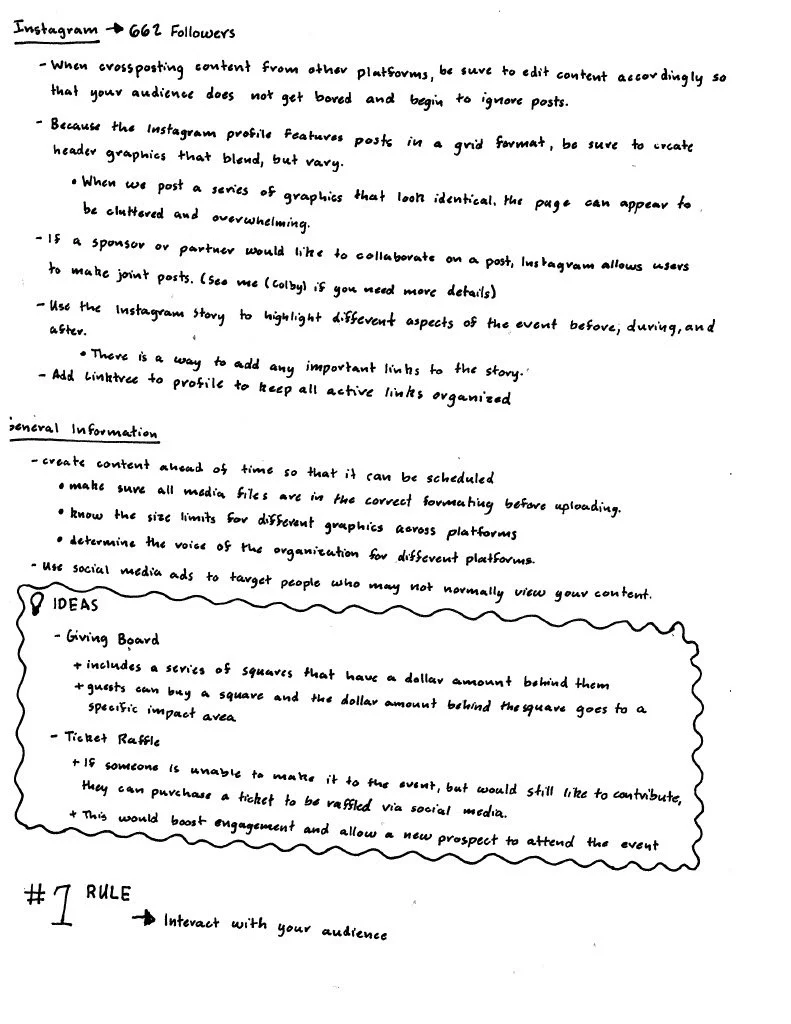 Instagram → 662 Followers
- When crossposting content from other platforms, be sure to edit content accordingly so
that your audience does not get bored and begin to ignore posts.
- Because the Instagram profile features posts in a grid format, be sure to create
header graphics that blend, but vary.
• When we post a series of graphics that look identical, the page can appear to
be cluttered and overwhelming.
- If a sponsor or partner would like to collaborate on a post, Instagram allows users
to make joint posts. (See me (Colby) if you need more details)
- Use the Instagram Story to highlight different aspects of the event before, during, and
after.
• There is a way to add any important links to the story.
- Add Linktree to profile to keep all active links organized
General Information
- create content ahead of time so that it can be scheduled
• make sure all media files are in the correct formating before uploading.
• know the size limits for different graphics across platforms
• determine the voice of the organization for different platforms.
- Use social media ads to target people who may not normally view your content.
IDEAS
- Giving Board
+ includes a series of squares that have a dollar amount behind them
+ guests can buy a square and the dollar amount behind the square goes to a
specific impact area
- Ticket Raffle
+ If someone is unable to make it to the event, but would still like to contribute,
they can purchase a ticket to be raffled via social media.
+ This would boost engagement and allow a new prospect to attend the event
#1 RULE
→ Interact with your audience